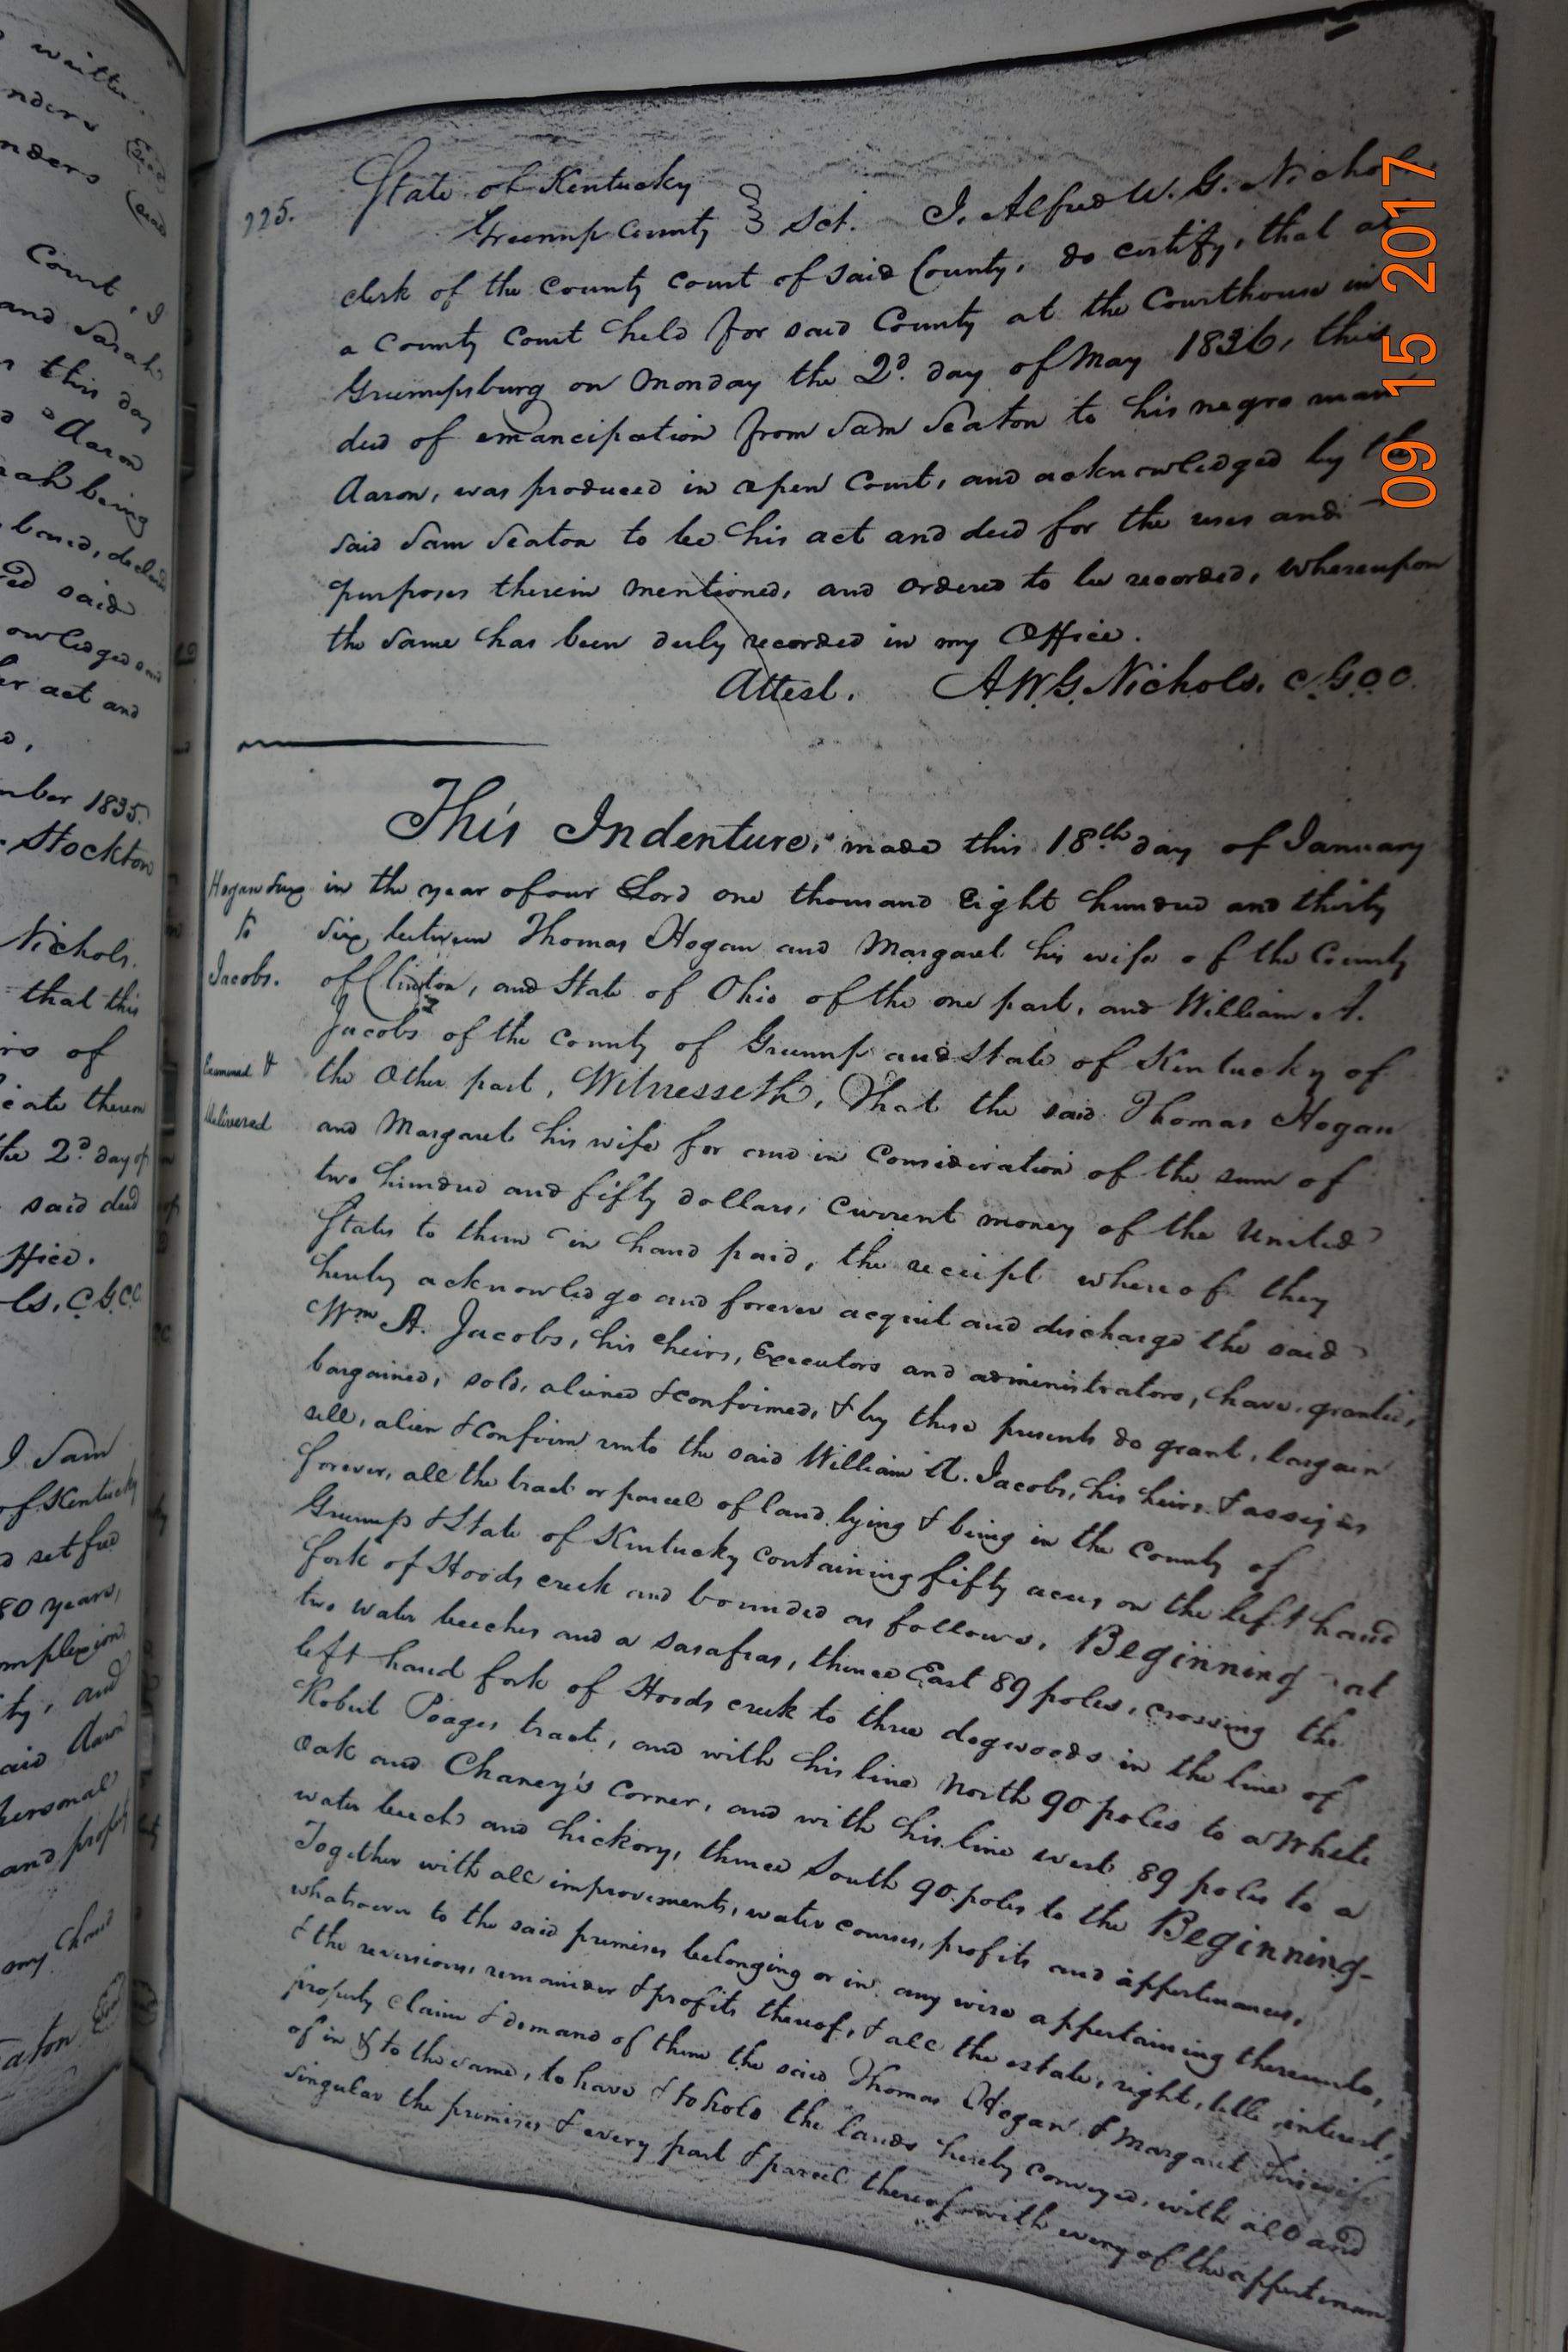 written
Court, I
and Sarah
this day
Aaron
being
said
owledged and
er act and
mber 1835.
Stockton
Nichols.
that this
of
the 2d day of
said deed
ffice.
ls, C.G.C.C.
I Sam
of Kentucky
set free
80 years,
mplexion
ty, and
said Aaron
personal
and
my hand
eaton Seal
225.
State of Kentucky
Greenup County } Sct. I, Alfred W. G. Nichols
clerk of the County Court of said County, do certify, that at
a County Court held for said County at the Courthouse in
Greenupsburg on Monday the 2d. day of May 1836, this
deed of emancipation from Sam Seaton to his negro man
Aaron, was produced in open Court, and acknowledged by the
said Sam Seaton to be his act and deed for the uses and
purposes therein mentioned, and ordered to be recorded, whereupon
the same has been duly recorded in my Office.
Attest. A.W.G. Nichols. C.G.C.C.
This Indenture, made this 18th day of January
in the year of our Lord one thousand Eight hundred and thirty
six, between Thomas Hogan and Margaret his wife of the County
of Clinton, and State of Ohio of the one part, and William A.
Jacobs of the County of Greenup and State of Kentucky of
the other part, Witnesseth, That the said Thomas Hogan
and Margaret his wife for and in consideration of the sum of
two hundred and fifty dollars, current money of the United
States to them in hand paid, the receipt whereof they
hereby acknowledge and forever acquit and discharge the said
Wm A. Jacobs, his heirs, Executors and administrators, have, granted,
bargained, sold, aliened & confirmed, & by these presents do grant, bargain
sell, alien & confirm unto the said William A. Jacobs, his heirs & assigns
forever, all the tract or parcel of land lying & being in the County of
Greenup & State of Kentucky containing fifty acres on the left hand
fork of Hoods creek and bounded as follows, Beginning at
two water beeches and a sasafras, thence East 89 poles, crossing the
left hand fork of Hoods creek to three dogwoods in the line of
Robert Poages tract, and with his line North 90 poles to a White
oak and Chaney's corner, and with his line west 89 poles to a
water beech and hickory, thence South 90 poles to the Beginning-
Together with all improvements, water courses, profits and appertinances,
whatsoever to the said premises belonging or in any wise appertaining thereunto,
& the reversions, remainder & profits thereof, & all the estate, right, title, interest,
property claim & demand of them the said Thomas Hogan & Margaret his wife
of in & to the same, to have & to hold the lands hereby conveyed, with all and
singular the premises & every part & parcel thereof with every of the appertinan
Hogan &ux
to
Jacobs.
Examined &
delivered
09 15 2017